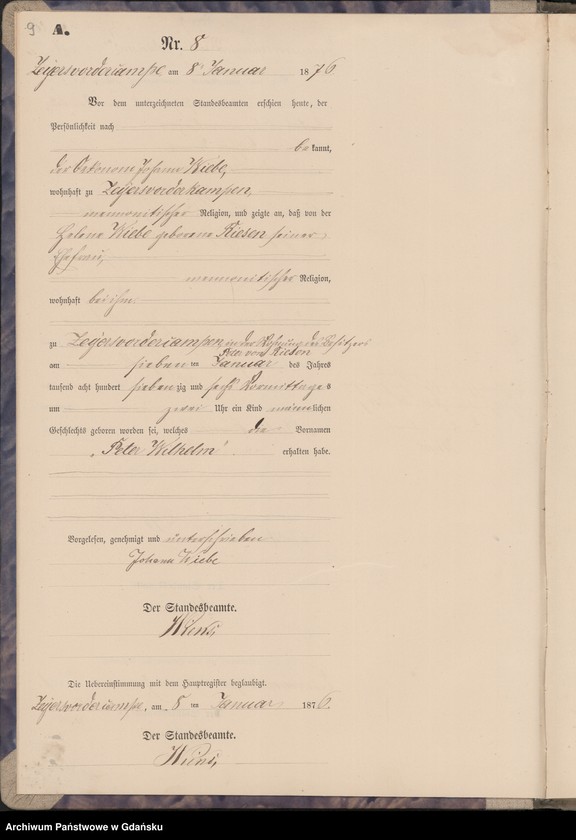 9
A.
Nr. 8
Zeyersvorderkampe am 8 Januar 1876
Vor dem unterzeichneten Standesbeamten erschien heute, der
Persönlichkeit nach
bekannt,
der Oekonom Johann Wiebe,
wohnhaft zu Zeyersvorderkampen
mennonitischer Religion, und zeigte an, daß von der
Helene Wiebe geborene Riesen seiner
Ehefrau,
mennonitischer Religion,
wohnhaft bei ihm
zu Zeyersvorderkampen, in der Wohnung des Besitzers
Peter von Riesen
am sieben ten Januar des Jahres
tausend acht hundert sieben zig und sechs Vormittags
um zwei Uhr ein Kind männlichen
Geschlechts geboren worden sei, welches die Vornamen
„Peter Wilhelm“ erhalten habe.
Vorgelesen, genehmigt und unterschrieben
Johann Wiebe
Der Standesbeamte.
Die Uebereinstimmung mit dem Hauptregister beglaubigt.
Zeyersvorderkampe, am 8 ten Januar 1876.
Der Standesbeamte.
Archiwum Państwowe w Gdańsku